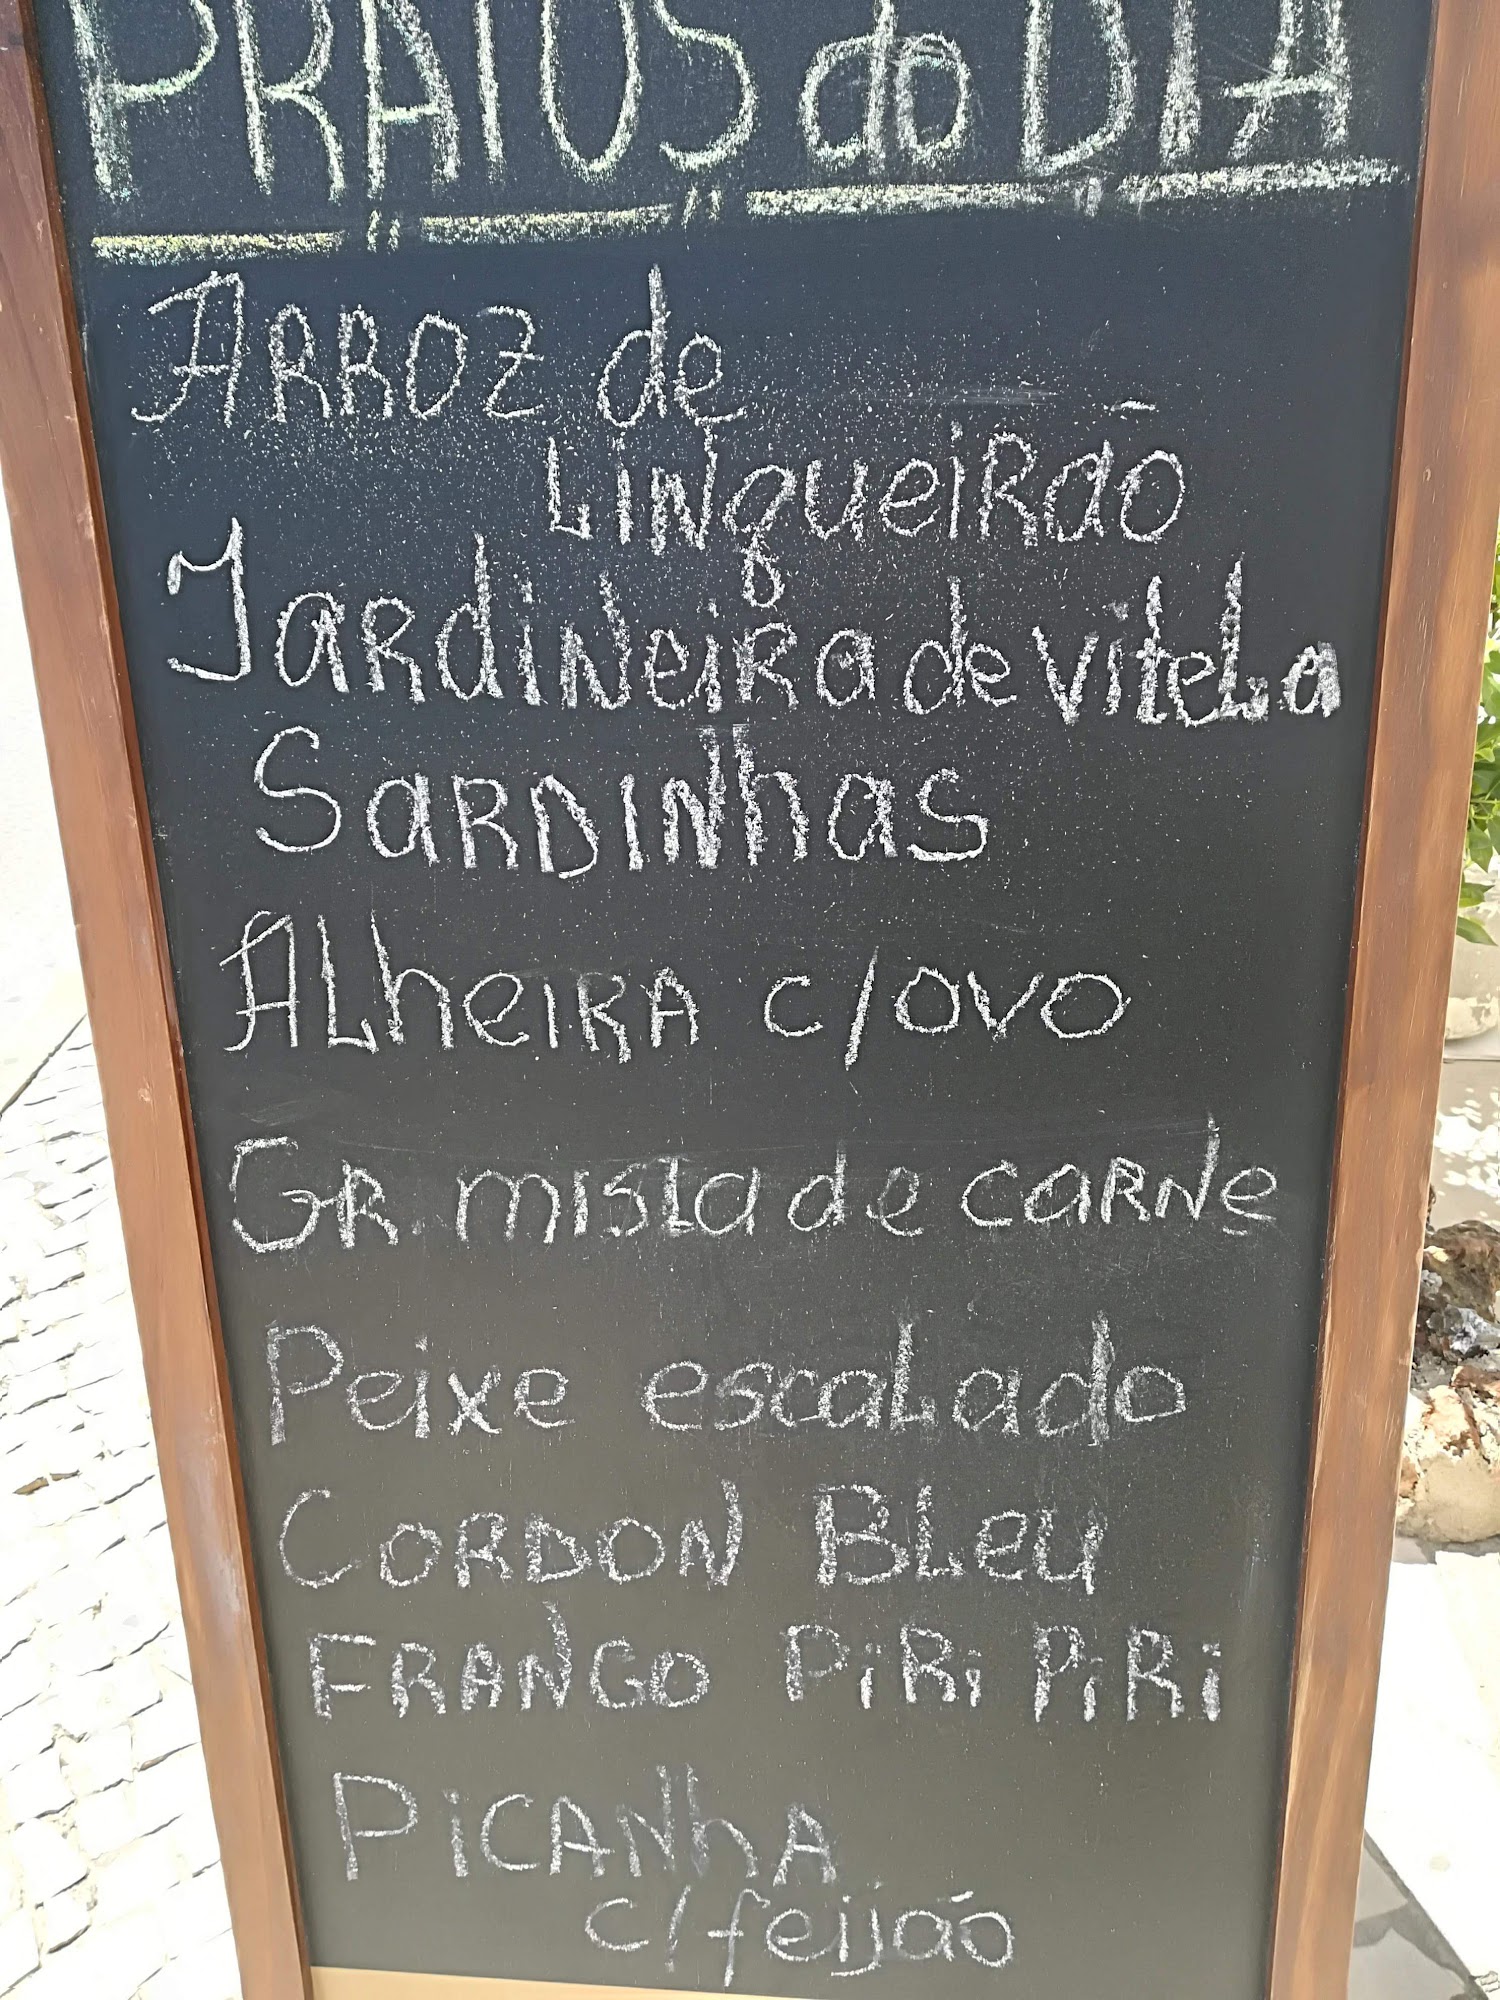 PRATOS do DIA
ARROZ de
LINgueiRão
JaRdiNeiRa de ViteLa
SaRDINhas
ALheIRA c/ovo
GR. mista de caRNe
Peixe escaLado
CoRDON BLeu
FRANGO PiRi PiRi
PiCANhA
c/feijão